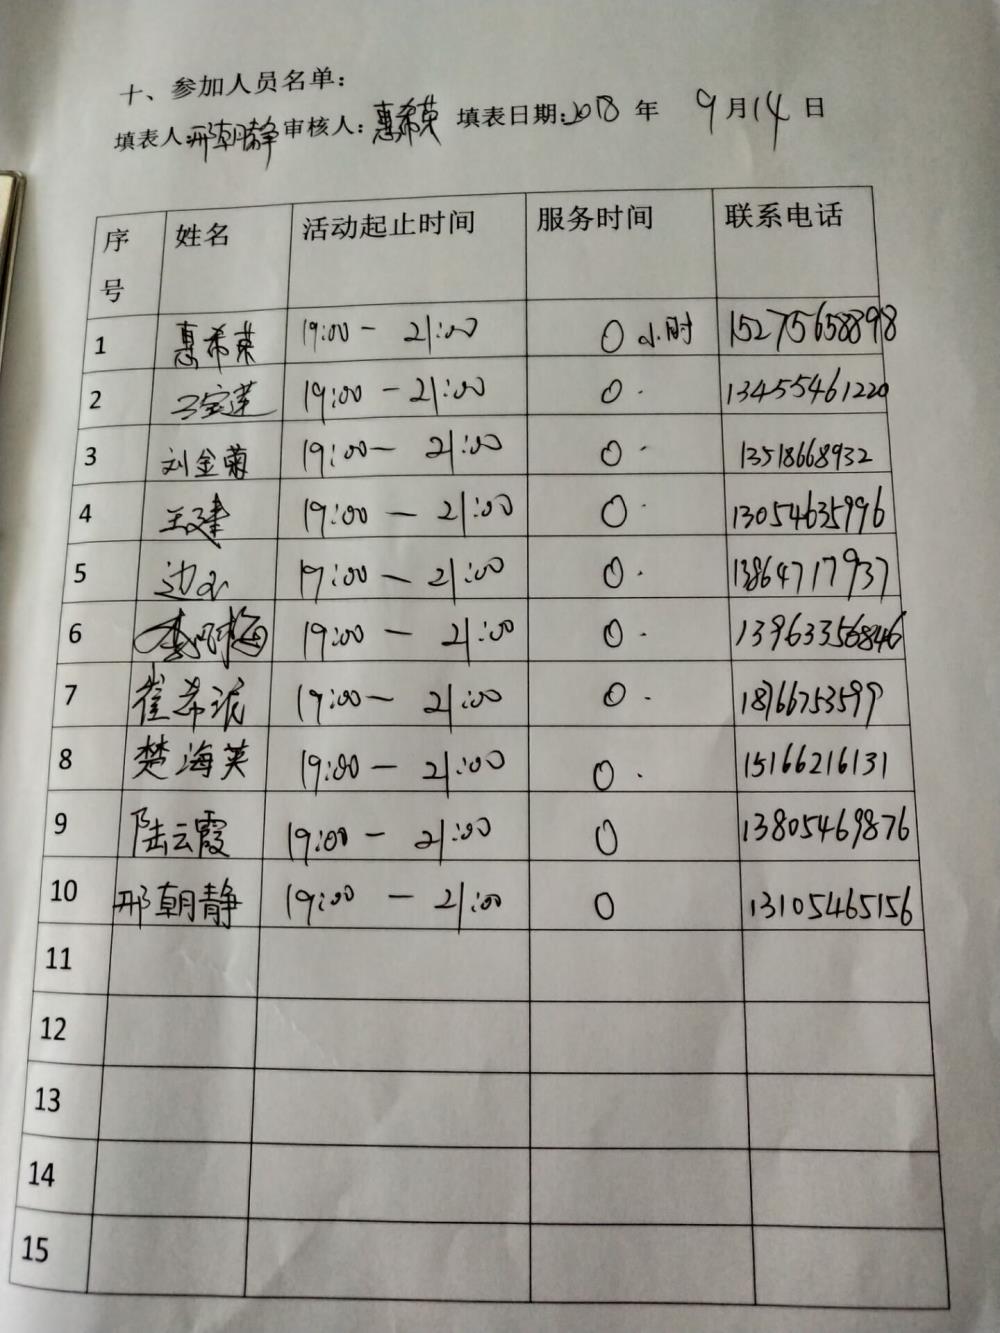 十、参加人员名单：
填表人：邢朝静 审核人：惠希荣 填表日期：2018 年 9 月 14 日
序号 姓名 活动起止时间 服务时间 联系电话
1 惠希荣 19:00 — 21:00 0 小时 15275658898
2 19:00 — 21:00 0 13455461220
3 刘金菊 19:00 — 21:00 0 13518668932
4 王建 19:00 — 21:00 0 13054635996
5 19:00 — 21:00 0 13864717937
6 19:00 — 21:00 0 13963356846
7 崔希泥 19:00 — 21:00 0 18766753599
8 楚海英 19:00 — 21:00 0 15166216131
9 陆云霞 19:00 — 21:00 0 13805469876
10 邢朝静 19:00 — 21:00 0 13105465156
11
12
13
14
15